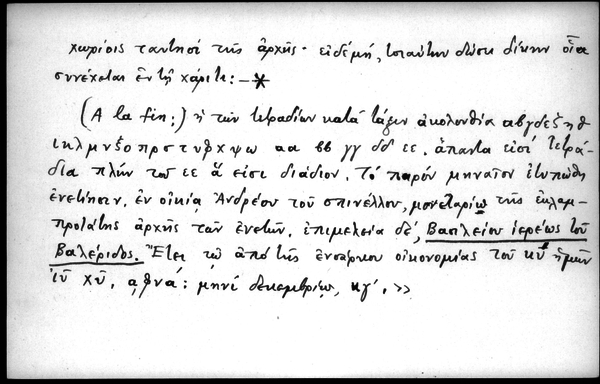 χωρίοις ταυτησί της ἀρχῆς· εἰδέμή, τοιαύτην δώσει δίκην οἵα
συνέχεται ἐν τῇ χάριτι: —*
(A la fin:) ἡ τῶν τετραδίων κατά τάξιν ἀκολουθία αβγδεζηθ
ικλμνξοπρστυφχψω αα ββ γγ δδ εε. ἅπαντα εἰσί τετρά-
δια πλήν τοῦ εε ὅ εἰσι διάδιον. Τό παρόν μηναῖον ἐτυπώθη
ἐνετίησιν, ἐν οἰκίᾳ Ἀνδρέου τοῦ σπινέλλου, μονεταρίῳ τῆς ἐκλαμ-
προτάτης ἀρχῆς τῶν ἐνετῶν, ἐπιμελείᾳ δέ, Βασιλείου ἱερέως τοῦ
Βαλέριδος. Ἔτει τῷ ἀπό τῆς ἐνσάρκου οἰκονομίας τοῦ κυ ἡμῶν
ἰῦ χῦ, αφνά: μηνί δεκεμβρίῳ, κγ'. >>